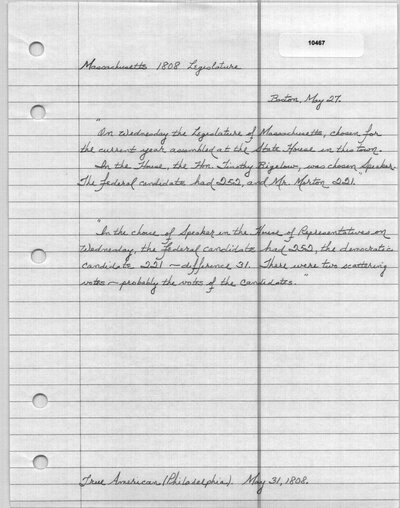 10467
Massachusetts 1808 Legislature
Boston, May 27.
"On Wednesday the Legislature of Massachusetts, chosen for
the current year, assembled at the State House in this town.
In the House, the Hon. Timothy Bigelow, was chosen Speaker.
The federal candidate had 252, and Mr. Morton 221."
"In the choice of Speaker in the House of Representatives on
Wednesday, the Federal candidate had 252, the democratic
candidate 221 – difference 31. There were two scattering
votes – probably the votes of the candidates."
True American (Philadelphia). May 31, 1808.